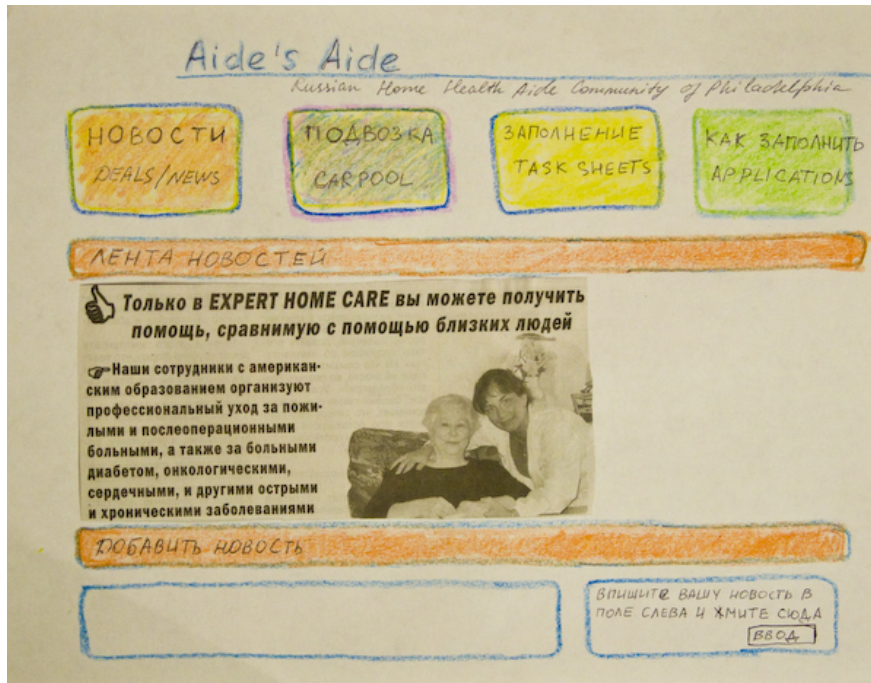 Aide's Aide
Russian Home Health Aide Community of Philadelphia
НОВОСТИ
DEALS/NEWS
ПОДВОЗКА
CARPOOL
ЗАПОЛНЕНИЕ
TASK SHEETS
КАК ЗАПОЛНИТЬ
APPLICATIONS
ЛЕНТА НОВОСТЕЙ
Только в EXPERT HOME CARE вы можете получить
помощь, сравнимую с помощью близких людей
Наши сотрудники с американ-
ским образованием организуют
профессиональный уход за пожи-
лыми и послеоперационными
больными, а также за больными
диабетом, онкологическими,
сердечными, и другими острыми
и хроническими заболеваниями
ДОБАВИТЬ НОВОСТЬ
ВПИШИТЕ ВАШУ НОВОСТЬ В
ПОЛЕ СЛЕВА И ЖМИТЕ СЮДА
ВВОД